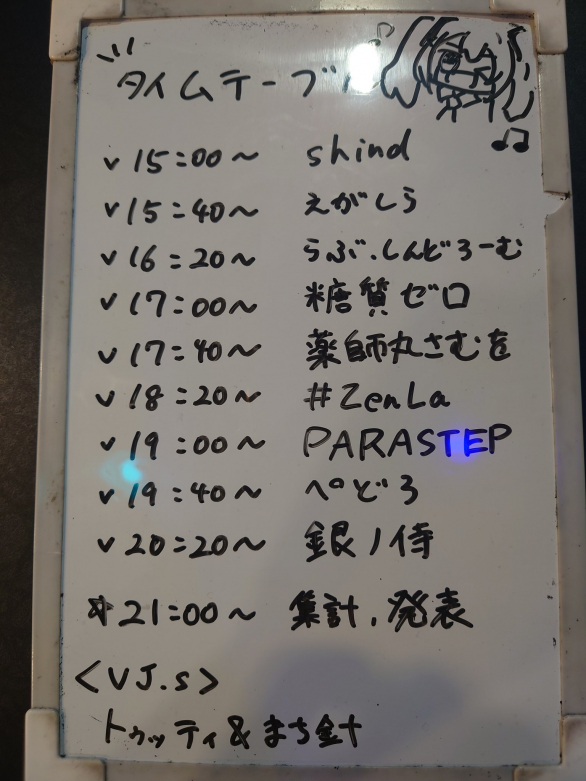 タイムテーブル
✓15:00～ shind
✓15:40～ えがしら
✓16:20～ らぶ.しんどろーむ
✓17:00～ 糖質ゼロ
✓17:40～ 薬師丸さむを
✓18:20～ #ZenLa
✓19:00～ PARASTEP
✓19:40～ ぺどろ
✓20:20～ 銀ノ侍
*21:00～ 集計,発表
<VJ.s>
トゥッティ&まち針